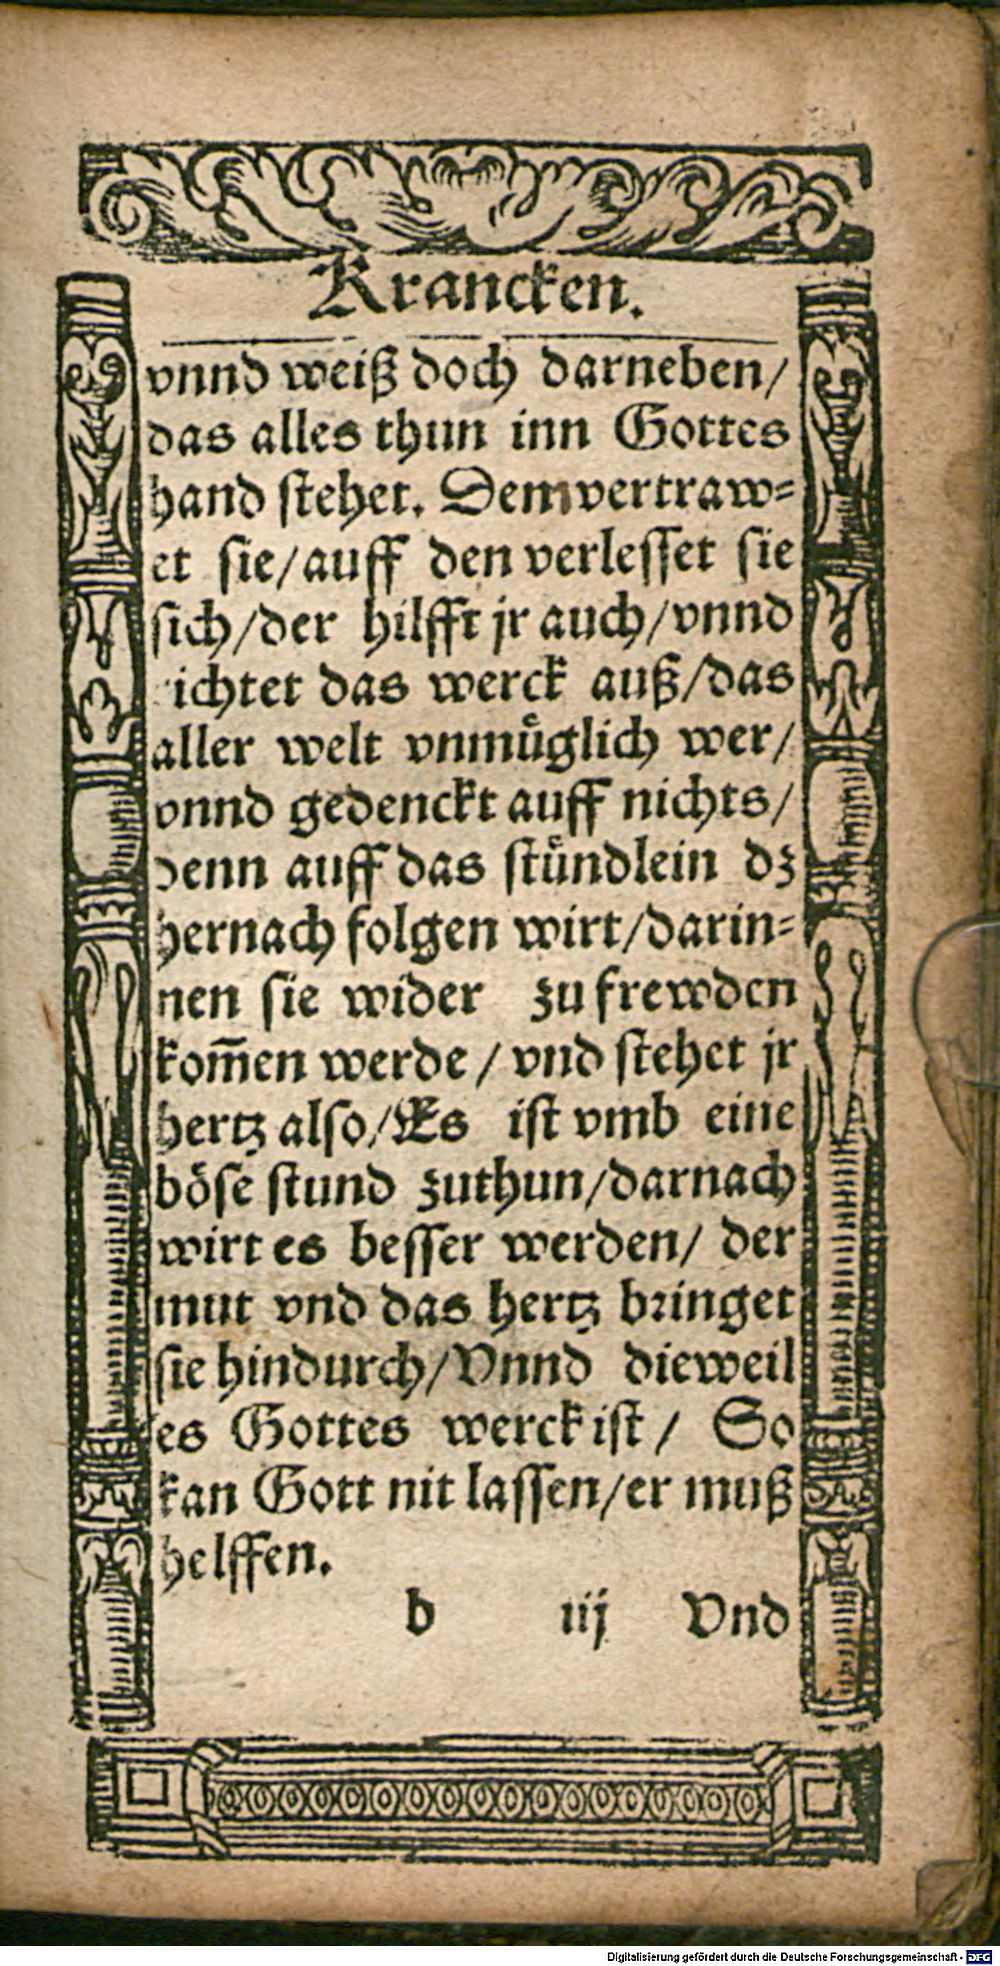 Krancken.
vnnd weiß doch darneben/
das alles thun inn Gottes
hand stehet. Dem vertraw⸗
et sie/auff den verlesset sie
sich/der hilfft jr auch/vnnd
richtet das werck auß/das
aller welt vnmuͤglich wer/
vnnd gedenckt auff nichts/
denn auff das stuͤndlein dz
hernach folgen wirt/darin⸗
nen sie wider zu frewden
kom̃en werde / vnd stehet jr
hertz also/Es ist vmb eine
boͤse stund zuthun/darnach
wirt es besser werden/ der
mut vnd das hertz bringet
sie hindurch/Vnnd dieweil
es Gottes werck ist / So
kan Gott nit lassen/er muß
helffen.
b iij Vnd
Digitalisierung gefördert durch die Deutsche Forschungsgemeinschaft - DFG